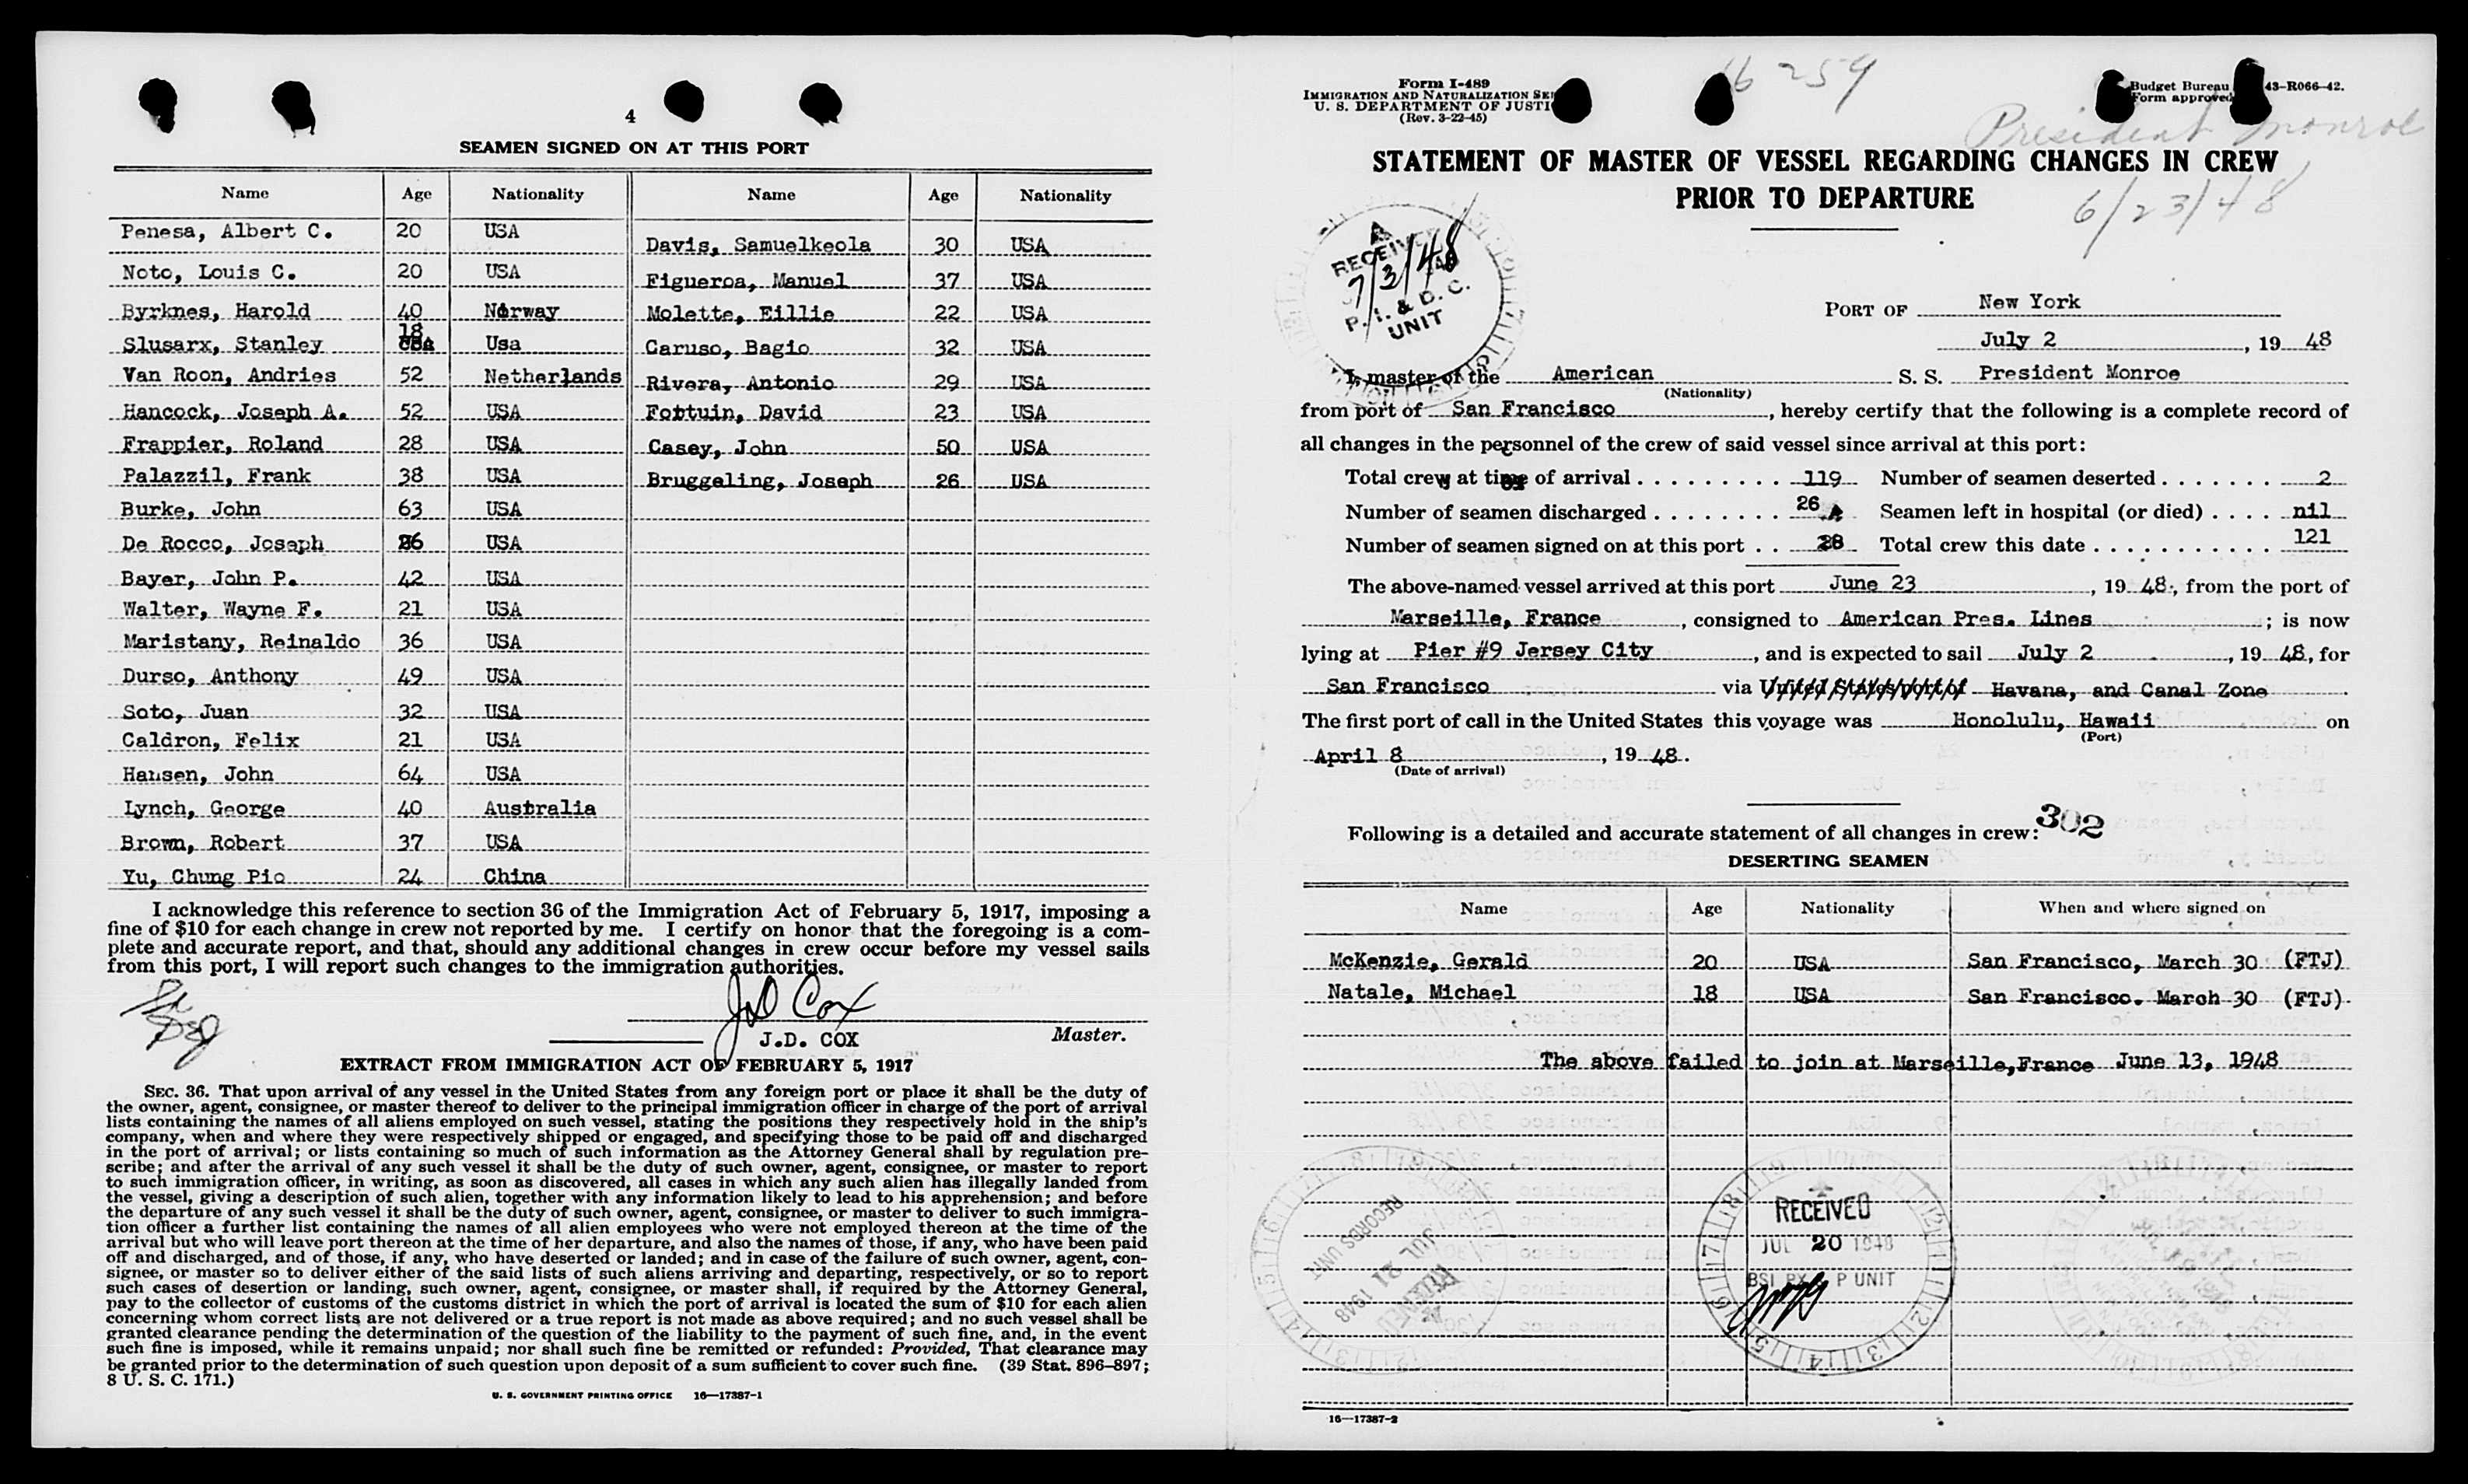 4
SEAMEN SIGNED ON AT THIS PORT
Name Age Nationality Name Age Nationality
Penesa, Albert C. 20 USA Davis, Samuelkeola 30 USA
Noto, Louis C. 20 USA Figueroa, Manuel 37 USA
Byrknes, Harold 40 Norway Molette, Eillie 22 USA
Slusarx, Stanley 18 Usa Caruso, Bagio 32 USA
Van Roon, Andries 52 Netherlands Rivera, Antonio 29 USA
Hancock, Joseph A. 52 USA Fottuin, David 23 USA
Frappier, Roland 28 USA Casey, John 50 USA
Palazzil, Frank 38 USA Bruggeling, Joseph 26 USA
Burke, John 63 USA
De Rocco, Joseph USA
Bayer, John P. 42 USA
Walter, Wayne F. 21 USA
Maristany, Reinaldo 36 USA
Durso, Anthony 49 USA
Soto, Juan 32 USA
Caldron, Felix 21 USA
Hansen, John 64 USA
Lynch, George 40 Australia
Brown, Robert 37 USA
Yu, Chung Pio 24 China
I acknowledge this reference to section 36 of the Immigration Act of February 5, 1917, imposing a
fine of $10 for each change in crew not reported by me. I certify on honor that the foregoing is a com-
plete and accurate report, and that, should any additional changes in crew occur before my vessel sails
from this port, I will report such changes to the immigration authorities.
JD Cox
J.D. COX Master.
EXTRACT FROM IMMIGRATION ACT OF FEBRUARY 5, 1917
SEC. 36. That upon arrival of any vessel in the United States from any foreign port or place it shall be the duty of
the owner, agent, consignee, or master thereof to deliver to the principal immigration officer in charge of the port of arrival
lists containing the names of all aliens employed on such vessel, stating the positions they respectively hold in the ship's
company, when and where they were respectively shipped or engaged, and specifying those to be paid off and discharged
in the port of arrival; or lists containing so much of such information as the Attorney General shall by regulation pre-
scribe; and after the arrival of any such vessel it shall be the duty of such owner, agent, consignee, or master to report
to such immigration officer, in writing, as soon as discovered, all cases in which any such alien has illegally landed from
the vessel, giving a description of such alien, together with any information likely to lead to his apprehension; and before
the departure of any such vessel it shall be the duty of such owner, agent, consignee, or master to deliver to such immigra-
tion officer a further list containing the names of all alien employees who were not employed thereon at the time of the
arrival but who will leave port thereon at the time of her departure, and also the names of those, if any, who have been paid
off and discharged, and of those, if any, who have deserted or landed; and in case of the failure of such owner, agent, con-
signee, or master so to deliver either of the said lists of such aliens arriving and departing, respectively, or so to report
such cases of desertion or landing, such owner, agent, consignee, or master shall, if required by the Attorney General,
pay to the collector of customs of the customs district in which the port of arrival is located the sum of $10 for each alien
concerning whom correct lists are not delivered or a true report is not made as above required; and no such vessel shall be
granted clearance pending the determination of the question of the liability to the payment of such fine, and, in the event
such fine is imposed, while it remains unpaid; nor shall such fine be remitted or refunded: Provided, That clearance may
be granted prior to the determination of such question upon deposit of a sum sufficient to cover such fine. (39 Stat. 896-897;
8 U. S. C. 171.)
U. S. GOVERNMENT PRINTING OFFICE 16—17387-1
Form I-489
IMMIGRATION AND NATURALIZATION
U. S. DEPARTMENT OF
(Rev. 3-22-45)
16 259
Budget Bureau 43-R066-42.
Form approved
President Monroe
STATEMENT OF MASTER OF VESSEL REGARDING CHANGES IN CREW
PRIOR TO DEPARTURE
6/23/48
RECEIVED
7/3/48
P. I. & D. C.
UNIT
PORT OF New York
July 2, 19 48
I, master of the American S. S. President Monroe
(Nationality)
from port of San Francisco, hereby certify that the following is a complete record of
all changes in the personnel of the crew of said vessel since arrival at this port:
Total crew at time of arrival . . . . . . . . . . 119 Number of seamen deserted . . . . . . . 2
Number of seamen discharged . . . . . . . . 26 Seamen left in hospital (or died) . . . . nil
Number of seamen signed on at this port . . 28 Total crew this date . . . . . . . . . . . 121
The above-named vessel arrived at this port June 23, 19 48, from the port of
Marseille, France, consigned to American Pres. Lines; is now
lying at Pier #9 Jersey City, and is expected to sail July 2, 19 48, for
San Francisco via United States port of Havana, and Canal Zone
The first port of call in the United States this voyage was Honolulu, Hawaii on
(Port)
April 8, 19 48.
(Date of arrival)
Following is a detailed and accurate statement of all changes in crew: 302
DESERTING SEAMEN
Name Age Nationality When and where signed on
McKenzie, Gerald 20 USA San Francisco, March 30 (FTJ)
Natale, Michael 18 USA San Francisco. March 30 (FTJ)
The above failed to join at Marseille,France June 13, 1948
RECORDS UNIT
JUL 21 1948
RECEIVED
JUL 20 1948
BSI P UNIT
16—17387-2